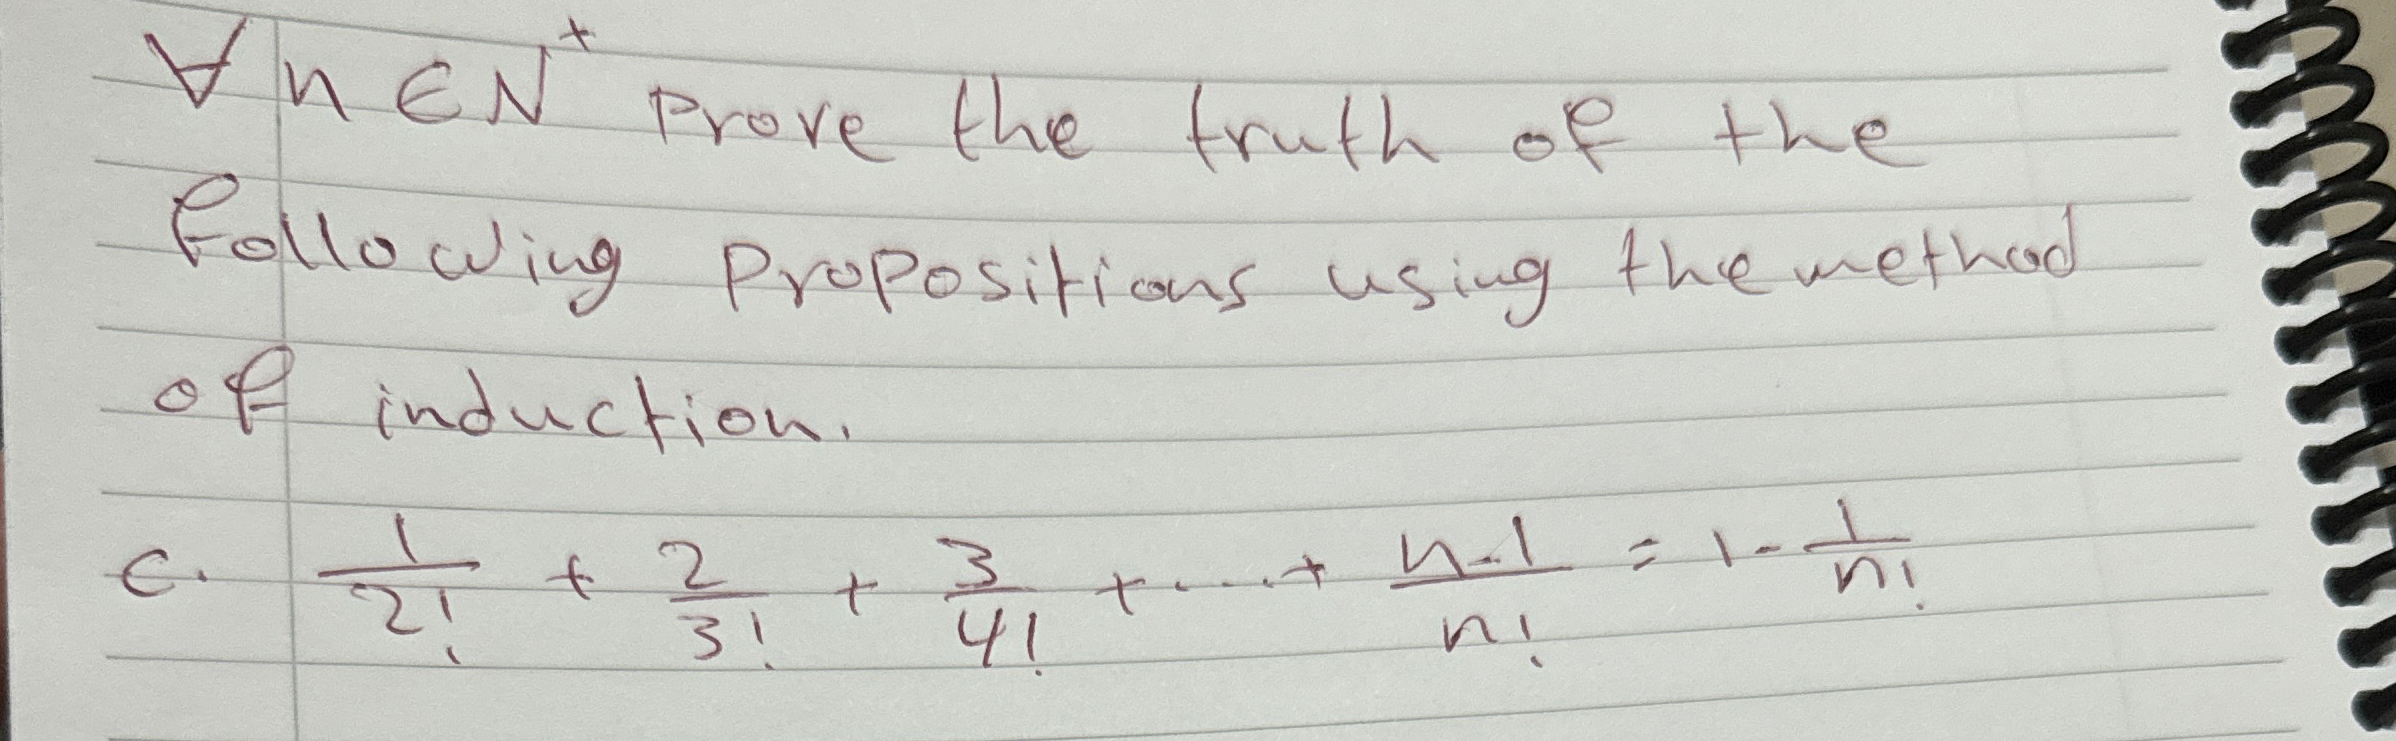 ∀ n ∈ N⁺ Prove the truth of the
following Propositions using the method
of induction.
c. 1/2! + 2/3! + 3/4! + ..... + n-1/n! = 1 - 1/n!